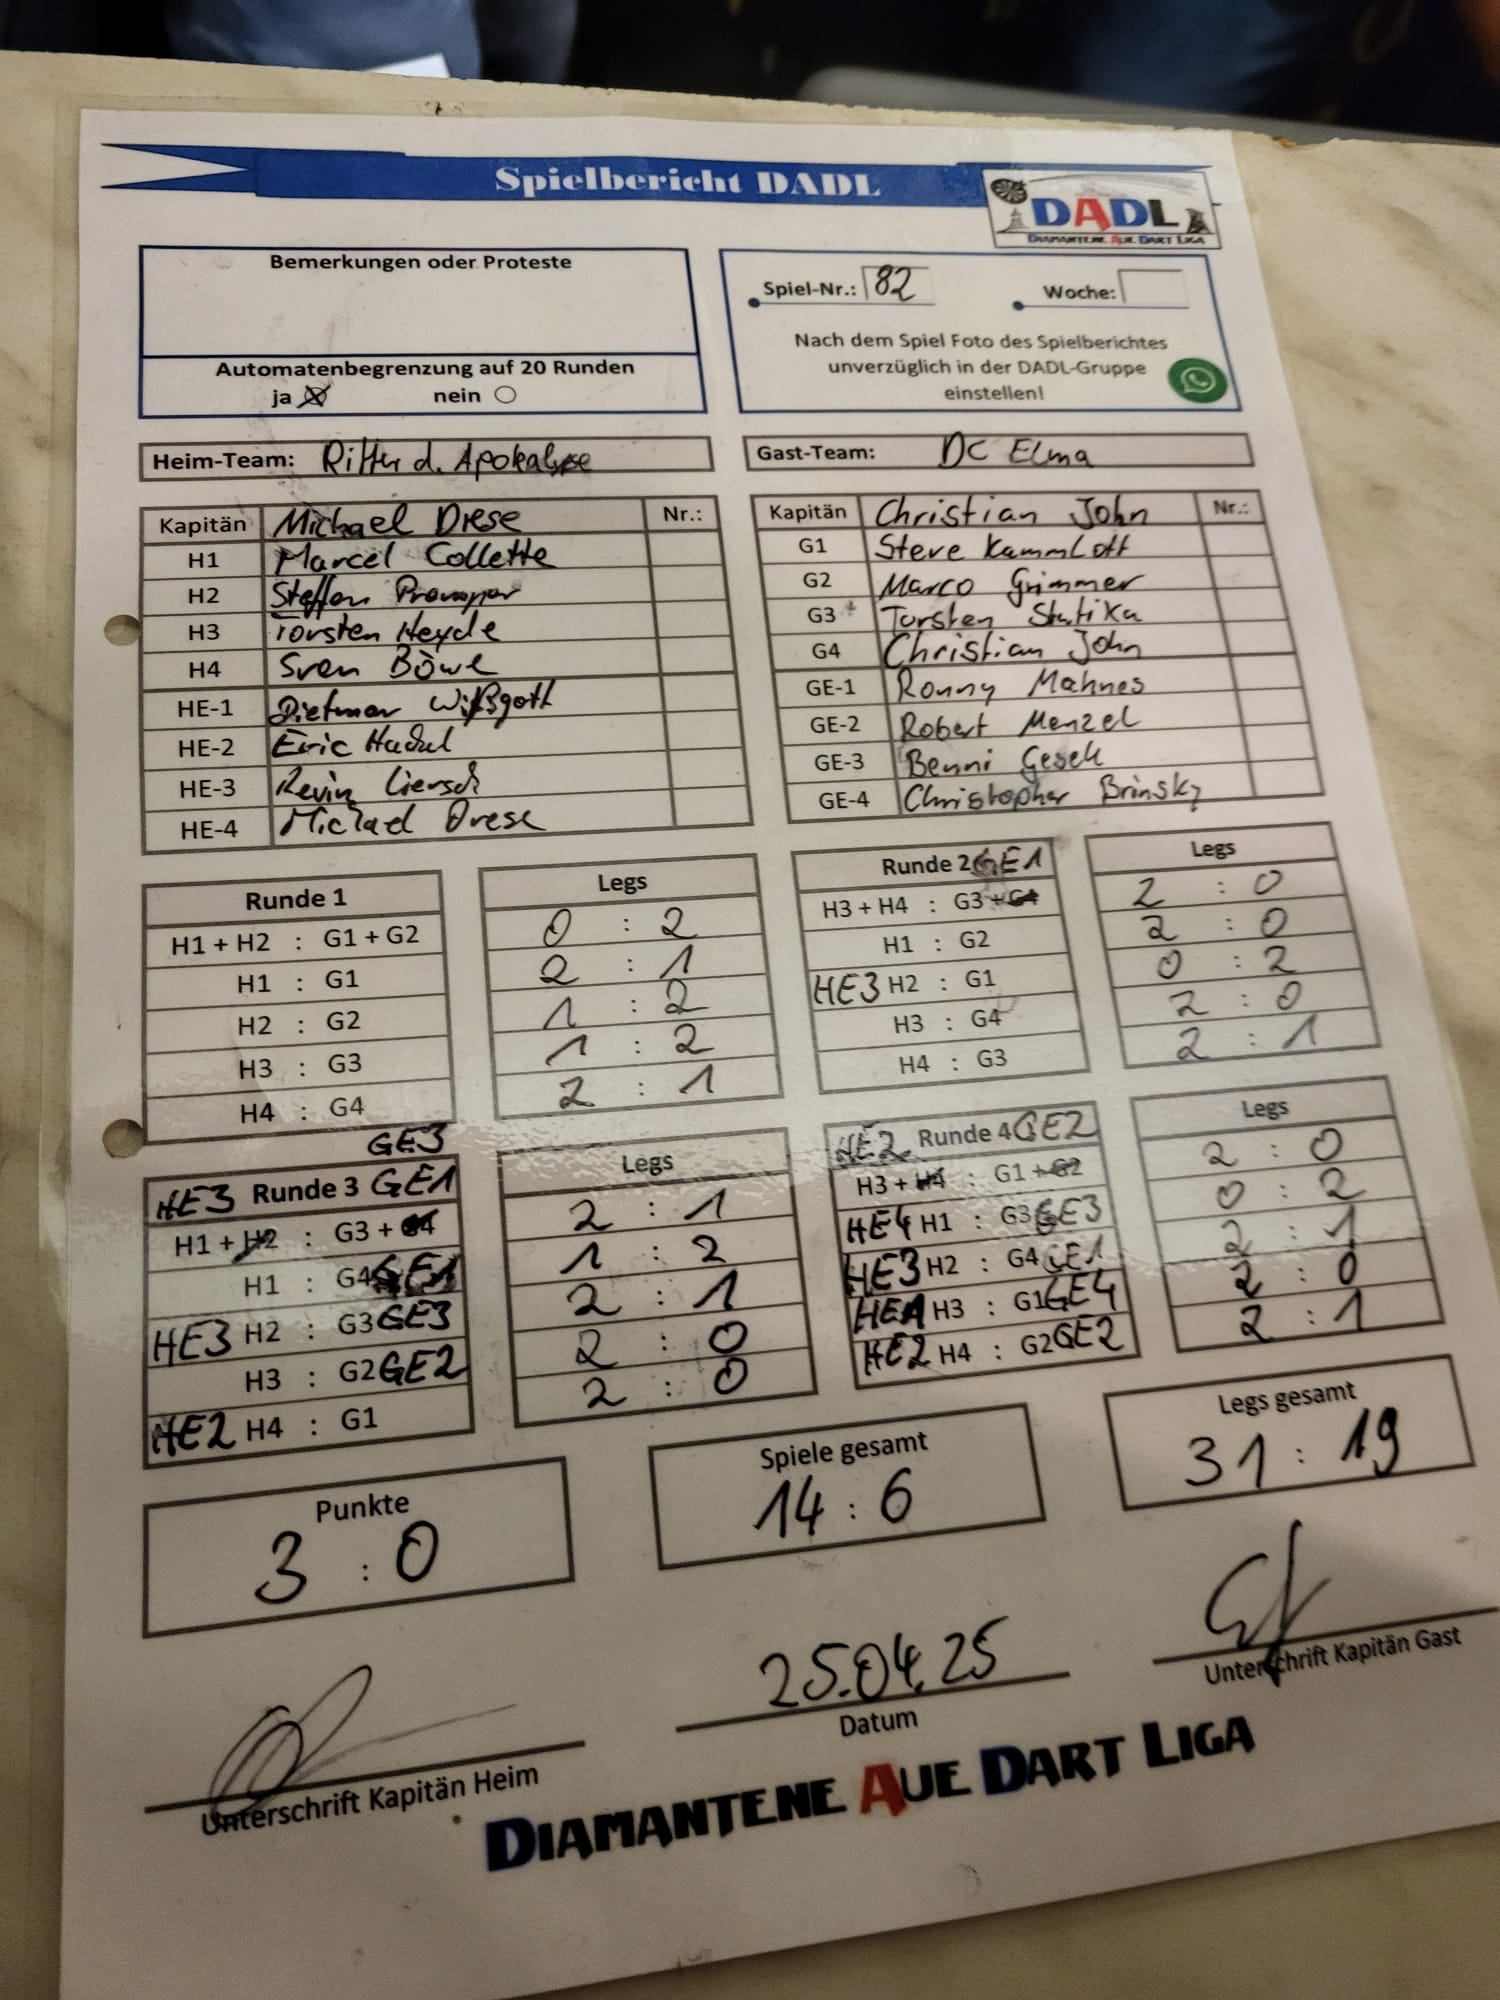 Spielbericht DADL
DADL
DIAMANTENE AUE DART LIGA
Bemerkungen oder Proteste
Automatenbegrenzung auf 20 Runden
ja nein
Spiel-Nr.: 82 Woche:
Nach dem Spiel Foto des Spielberichtes
unverzüglich in der DADL-Gruppe
einstellen!
Heim-Team: Ritter d. Apokalypse
Gast-Team: DC Elma
Kapitän Michael Drese Nr.:
H1 Marcel Collette
H2 Steffen
H3 Torsten Heyde
H4 Sven Böwe
HE-1 Dietmar Wißgott
HE-2 Eric Hackel
HE-3 Kevin Liersch
HE-4 Michael Drese
Kapitän Christian John Nr.:
G1 Steve Kammlott
G2 Marco Grimmer
G3 Torsten Statika
G4 Christian John
GE-1 Ronny Mahnes
GE-2 Robert Menzel
GE-3 Benni Geseh
GE-4 Christopher Brinsky
Runde 1 Legs
H1 + H2 : G1 + G2 0 : 2
H1 : G1 2 : 1
H2 : G2 1 : 2
H3 : G3 1 : 2
H4 : G4 2 : 1
Runde 2 GE1 Legs
H3 + H4 : G3 + G4 2 : 0
H1 : G2 2 : 0
HE3 H2 : G1 0 : 2
H3 : G4 2 : 0
H4 : G3 2 : 1
GE3
HE3 Runde 3 GE1 Legs
H1 + H2 : G3 + G4 2 : 1
H1 : G4 GE1 1 : 2
HE3 H2 : G3 GE3 2 : 1
H3 : G2 GE2 2 : 0
HE2 H4 : G1 2 : 0
HE2 Runde 4 GE2 Legs
H3 + H4 : G1 + G2 2 : 0
HE4 H1 : G3 GE3 0 : 2
HE3 H2 : G4 GE1 2 : 1
HE1 H3 : G1 GE4 2 : 0
HE2 H4 : G2 GE2 2 : 1
Punkte
3 : 0
Spiele gesamt
14 : 6
Legs gesamt
31 : 19
25.04.25
Unterschrift Kapitän Heim
Datum
Unterschrift Kapitän Gast
DIAMANTENE AUE DART LIGA